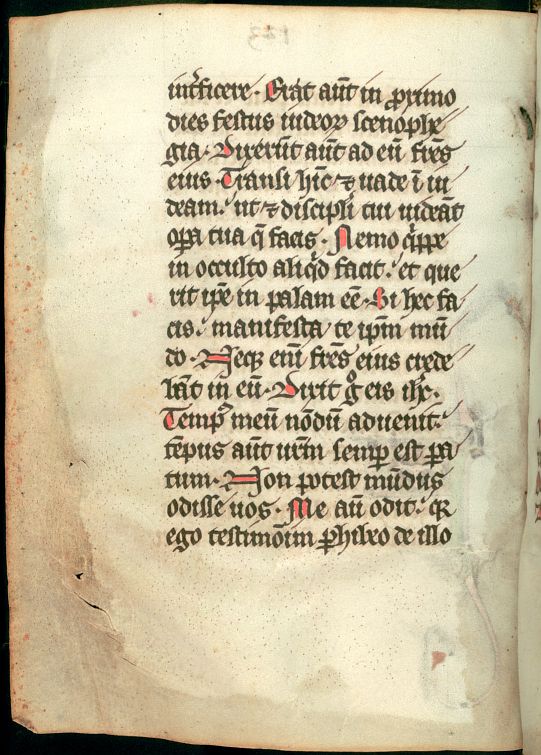 int̾ficere. Erat aūt in proximo
dies festus iudeoꝝ scenophe
gia. Dixerūt aūt ad eū fr̄es
eius. Transi hīc ⁊ uade ī iu
deam. ut ⁊ discipl̄i tui uideāt
oꝑa tua q̄ facis. Nemo q̄ppe
in occulto aliqd̾ facit. et que
rit ip̄e in palam eē. Si hec fa
cis. manifesta te ip̄m mū
do. Neqꝫ enī fr̄es eius crede
bāt in eū. Dixit gͦ eis ih̄c.
Tempꝰ meū nōdū aduenit.
tēpus aūt ur̄m semꝑ est pa
tum. Non potest mūdus
odisse uos. Me aū odit. qꝛ
ego testimōīm ꝑhibeo de illo